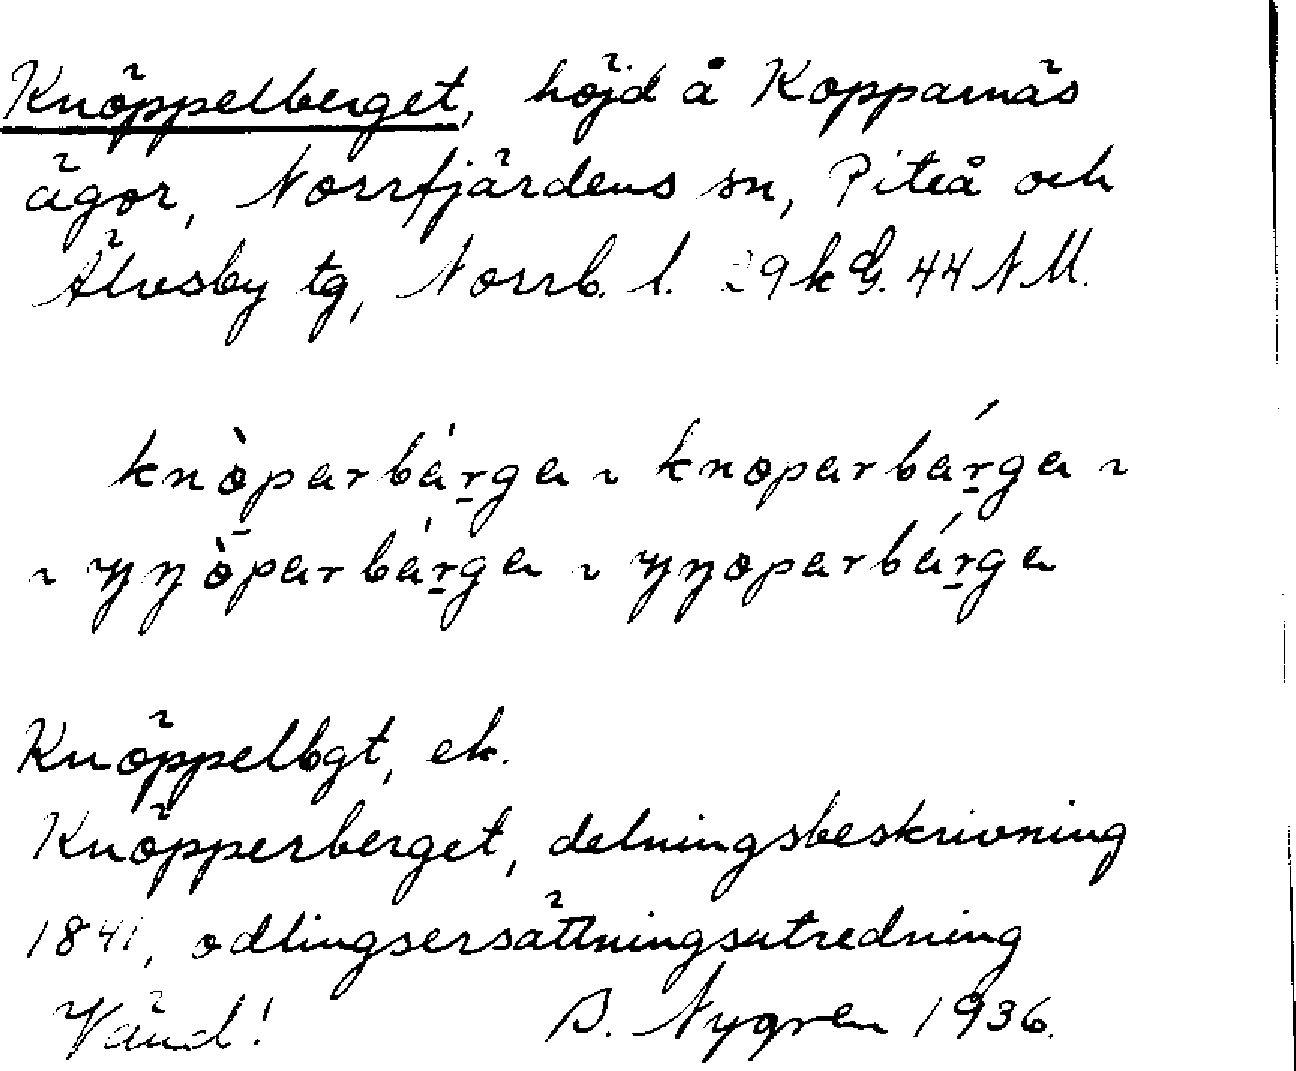 Knöppelberget, höjd å Kopparnäs
ägor, Norrfjärdens sn, Piteå och
Älvsby tg, Norrb. l. 29 k G. 44 N M.
knòparbàrga ~ knoparbárga ~
~ ŋŋòparbàrga ~ ŋŋoparbárga
Knöppelbgt, ek.
Knöpperberget, delningsbeskrivning
1841, odlingsersättningsutredning
Vänd! B. Nygren 1936.